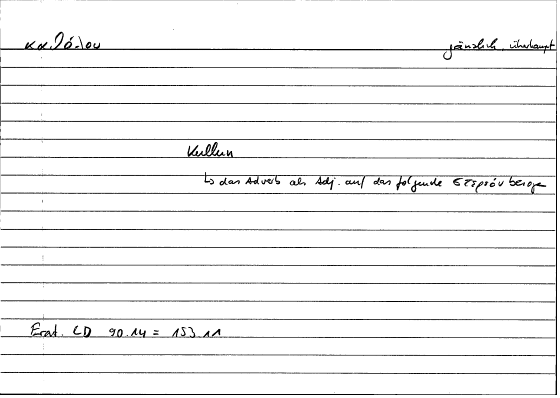 καθόλου gänzlich, überhaupt
Kullun
↳ das Adverb als Adj. auf das folgende στερεόν bezogen
Erat. CD 90.14 = 153.11